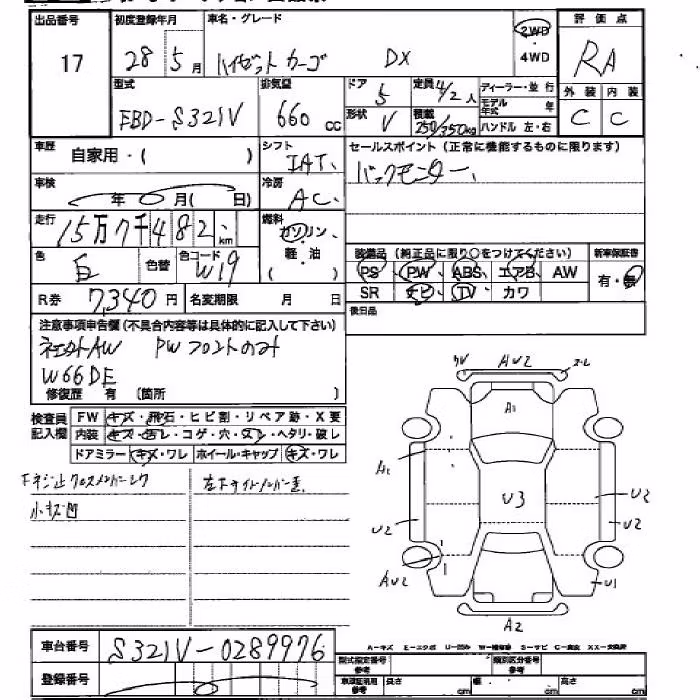 出品番号 初度登録年月 車名・グレード 評価点
17 28年5月 ハイゼットカーゴ DX 2WD RA
4WD
型式 排気量 ドア 定員 ディーラー・並行 外装 内装
EBD-S321V 660cc 5 4/2人 モデル年式 年 C C
形状 積載
V 250/350kg ハンドル 左・右
車歴 自家用・( ) シフト IAT、 セールスポイント(正常に機能するものに限ります)
車検 年 月(日) 冷房 AC、 バックモニター、
走行 15万7千482km 燃料 ガソリン、
軽・油
( )
色 白 色替 色コード W19 装備品(純正品に限り○をつけてください) 新車保証書
PS PW ABS エアB AW 有・無
R券 7,340円 名変期限 月 日 SR ナビ TV カワ
注意事項申告欄(不具合内容等は具体的に記入して下さい) 後日品
AW PWフロントのみ
W66DE
修復歴 有 [箇所 ]
検査員記入欄 FW キズ・飛石・ヒビ割・リペア跡・X要
内装 キズ・汚レ・コゲ・穴・スレ・ヘタリ・破レ
ドアミラー キズ・ワレ ホイール・キャップ キズ・ワレ
小キズ凹
AU2
A1
A1
U3
U2
U2
U2
AU2
U1
A2
車台番号 S321V-0289976
登録番号
型式指定番号 参考 類別区分番号 参考
長さ cm 幅 cm 高さ cm